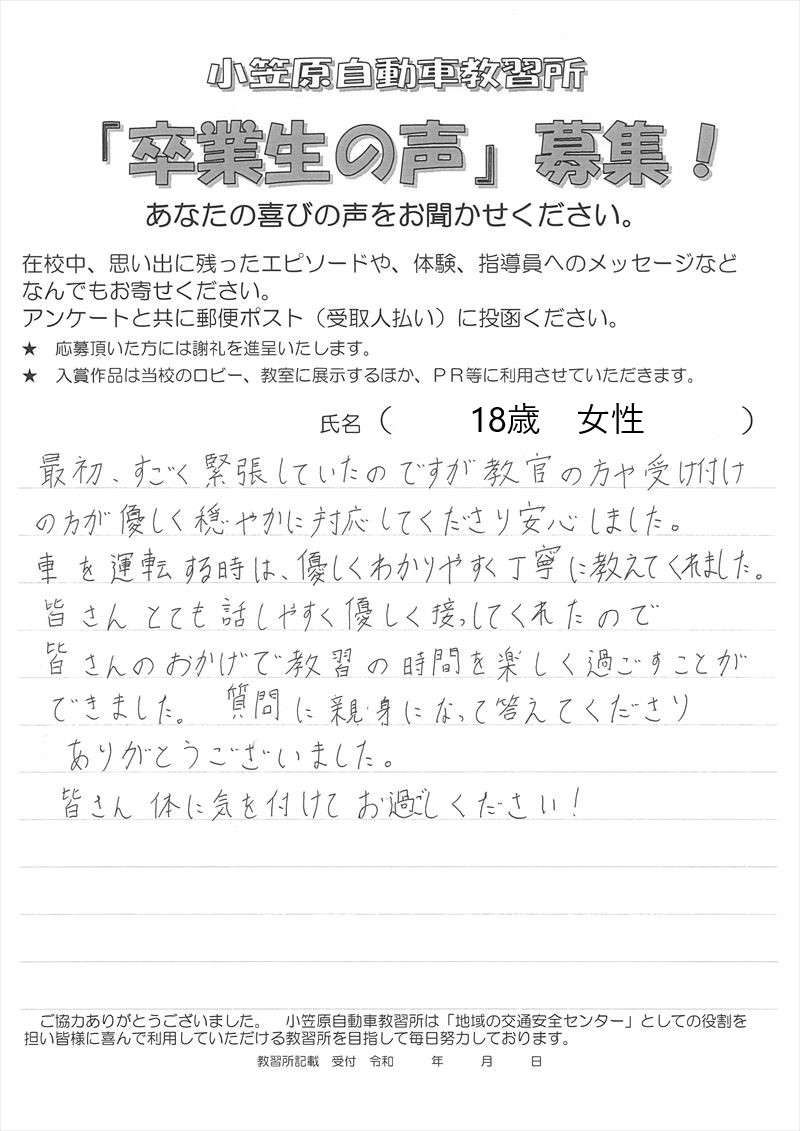 小笠原自動車教習所
『卒業生の声』募集！
あなたの喜びの声をお聞かせください。
在校中、思い出に残ったエピソードや、体験、指導員へのメッセージなど
なんでもお寄せください。
アンケートと共に郵便ポスト（受取人払い）に投函ください。
★　応募頂いた方には謝礼を進呈いたします。
★　入賞作品は当校のロビー、教室に展示するほか、ＰＲ等に利用させていただきます。
氏名（　18歳　女性　）
最初、すごく緊張していたのですが教官の方や受け付け
の方が優しく穏やかに対応してくださり安心しました。
車を運転する時は、優しくわかりやすく丁寧に教えてくれました。
皆さんとても話しやすく優しく接っしてくれたので
皆さんのおかげで教習の時間を楽しく過ごすことが
できました。質問に親身になって答えてくださり
ありがとうございました。
皆さん体に気を付けてお過ごしください！
ご協力ありがとうございました。　小笠原自動車教習所は「地域の交通安全センター」としての役割を
担い皆様に喜んで利用していただける教習所を目指して毎日努力しております。
教習所記載　受付　令和　　年　　月　　日